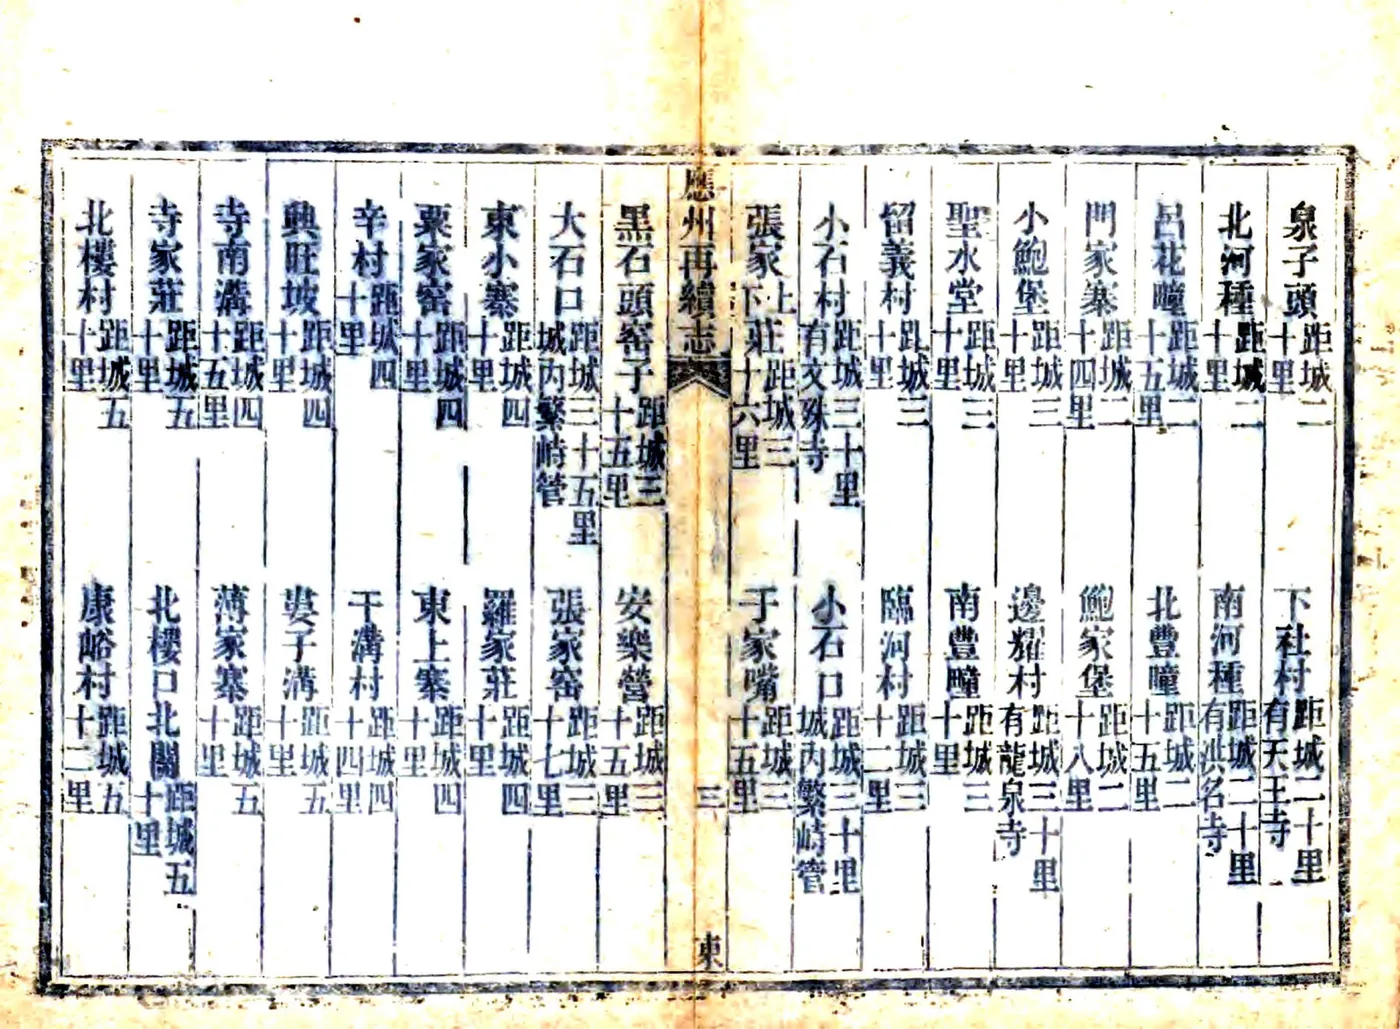 泉子頭距城二十里 下社村距城二十里有天王寺
北河種距城二十里 南河種距城二十里有洪名寺
呂花疃距城二十五里 北豐疃距城二十五里
門家寨距城二十四里 鮑家堡距城二十八里
小鮑堡距城三十里 邊耀村距城三十里有龍泉寺
聖水堂距城三十里 南豐疃距城三十里
留義村距城三十里 臨河村距城三十二里
小石村距城三十里有文殊寺 小石口距城三十里城內繁峙管
張家上下莊距城三十六里 于家嘴距城三十五里
應州再續志 三 東
黑石頭窑子距城三十五里 安樂營距城三十五里
大石口距城三十五里城內繁峙管 張家窑距城三十七里
東小寨距城四十里 羅家莊距城四十里
栗家窑距城四十里 東上寨距城四十里
辛村距城四十里 干溝村距城四十四里
興旺坡距城四十里 婁子溝距城五十里
寺南溝距城四十五里 薄家寨距城五十里
寺家莊距城五十里 北樓口北關距城五十里
北樓村距城五十里 康峪村距城五十二里